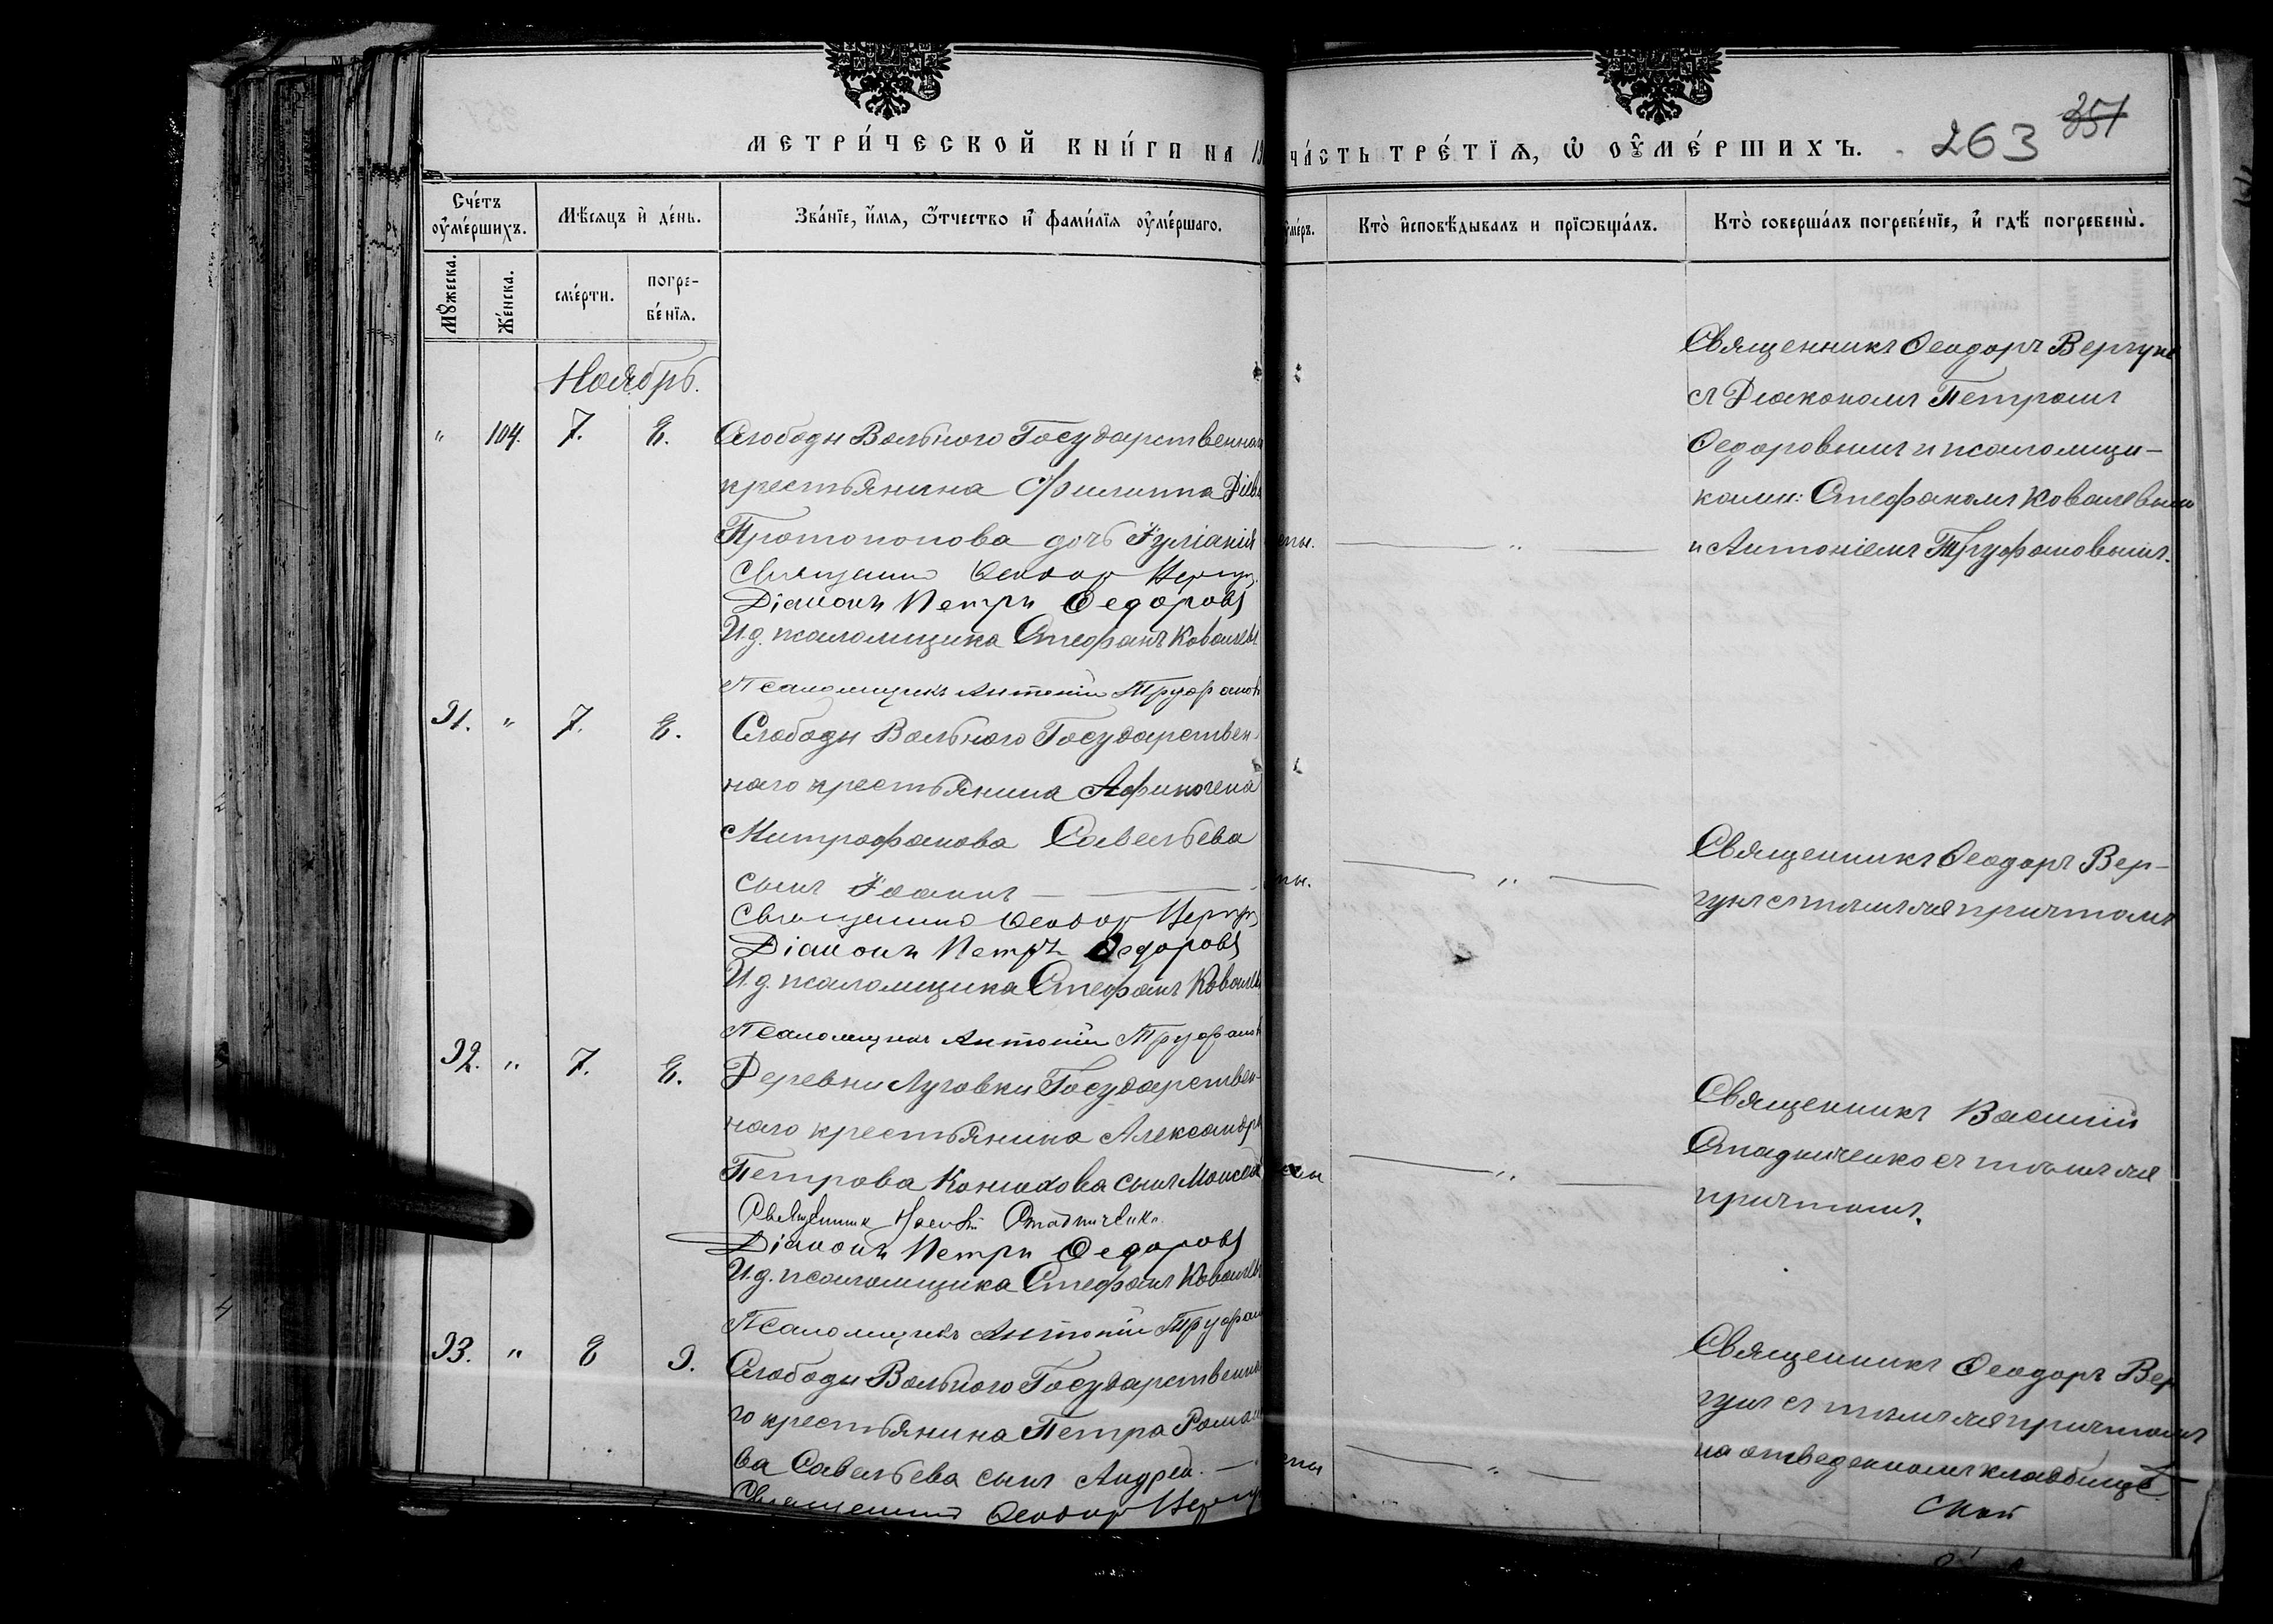 МЕТРИ́ЧЕСКОЙ КНИ́ГИ НА 19
ЧА́СТЬ ТРЕ́ТІѦ, Ѡ ОУ҆МЕ́РШИХЪ.
263 351
Сче́тъ оу҆ме́ршихъ.
Мѣ́сяцъ и҆ де́нь.
Зва́нїе, и҆́мѧ, ѻ҆́тчество и҆ фами́лїѧ оу҆ме́ршаго.
у҆ме́ръ.
Кто̀ и҆сповѣ́дывалъ и прїѡбща́лъ.
Кто̀ соверша́лъ погребе́нїе, и҆ гдѣ̀ погребены̀.
Мꙋ́жеска.
Же́нска.
сме́рти.
погре-
бе́нїѧ.
Ноябрь.
" 104. 7. 8. Слободы Вольного Государственнаго
крестьянина Филиппа
Протопопова дочь Іуліанія
Священник Феодор Вергун
Діаконъ Петръ Федоровъ
И.д. псаломщика Стефанъ Ковалевъ
Псаломщикъ Антоній Труфанов
Священникъ Феодоръ Вергунъ
съ Діакономъ Петромъ
Федоровымъ и псаломщи-
ками: Стефаномъ Ковалевымъ
и Антоніемъ Труфановымъ.
91. " 7. 8. Слободы Вольного Государствен-
наго крестьянина Афиногена
Митрофанова Савельева
сынъ Іоаннъ
Священник Феодор Вергун
Діаконъ Петръ Федоровъ
И.д. псаломщика Стефанъ Ковалев
Псаломщикъ Антоній Труфанов
Священникъ Феодоръ Вер-
гунъ съ тѣмъ же причтомъ
92. " 7. 8. Деревни Луговки Государствен-
наго крестьянина Александра
Петрова Конюхова сынъ Моисей
Священник Васілій Стадниченко
Діаконъ Петръ Федоровъ
И.д. псаломщика Стефанъ Ковалев
Псаломщикъ Антоній Труфан
Священникъ Василій
Стадниченко съ тѣмъ же
причтомъ.
93. " 8 9. Слободы Вольного Государственна
го крестьянина Петра Роман
ва Савельева сынъ Андрей.
Священник Феодор Вергун
Священникъ Феодоръ Вер
гунъ съ тѣмъ же причтомъ
на отведенномъ кладбищѣ